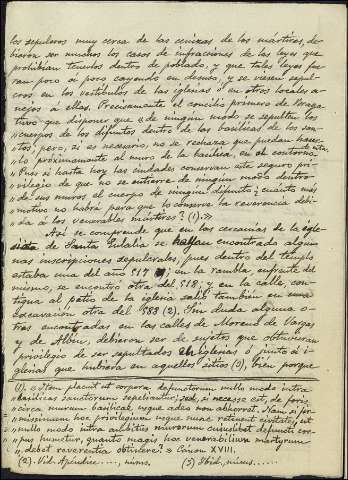 los sepulcros muy cerca de las cenizas de los mártires, de-
bieron ser muchos los casos de infracciones de las leyes que
prohibían tenerlos dentro de poblado, y que tales leyes fue-
ran poco á poco cayendo en desuso, y se viesen sepul-
cros en los vestíbulos de las iglesias ó en otros locales a-
nejos á ellas. Precisamente el concilio primero de Braga
tuvo que disponer que «de ningun modo se sepulten los
"cuerpos de los difuntos dentro de las basílicas de los san-
"tos; pero, si es necesario, no se rechaza que puedan hacer-
"lo próximamente al muro de la basílica, en el contorno.
"Pues si hasta hoy las ciudades conservan este seguro pri-
"vilegio de que no se entierre de ningun modo dentro
"de sus muros el cuerpo de ningun difunto, ¿cuánto más
"motivo no habrá para que lo conserve la reverencia debi-
"da á los venerables mártires? (1).»
Así se comprende que en las cercanías de la igle-
sia de Santa Eulalia se hayan encontrado algu-
nas inscripciones sepulcrales, pues dentro del templo
estaba una del año 517; en la rambla, enfrente del
mismo, se encontró otra del 518, y en la calle, con-
tigua al patio de la iglesia salió también en
excavación otra del 588 (2). Sin duda alguna o-
tras encontradas en las calles de Moreno de Vargas
y de Albín, debieron ser de sujetos que obtuvieran
privilegio de ser sepultados en iglesias ó junto á i-
glesias que hubiera en aquellos sitios (3), bien porque
(1). «Item placuit ut corpora defunctorum nullo modo intra
"basilicas sanctorum sepeliantur; sed, si necesse est, de foris,
"circa murum basilicae usque adeo non abhorret. Nam si fir-
"missimum hoc privilegium usque nunc retinent civitates, ut
"nullo modo intra ambitus murorum cuiuslibet defuncti cor-
"pus humetur, quanto magis hoc venerabilium martyrum
"debet reverentia obtinere?» Cánon XVIII.
(2). Vid. Apéndice ....., núms. (3). Ibid., núms ......